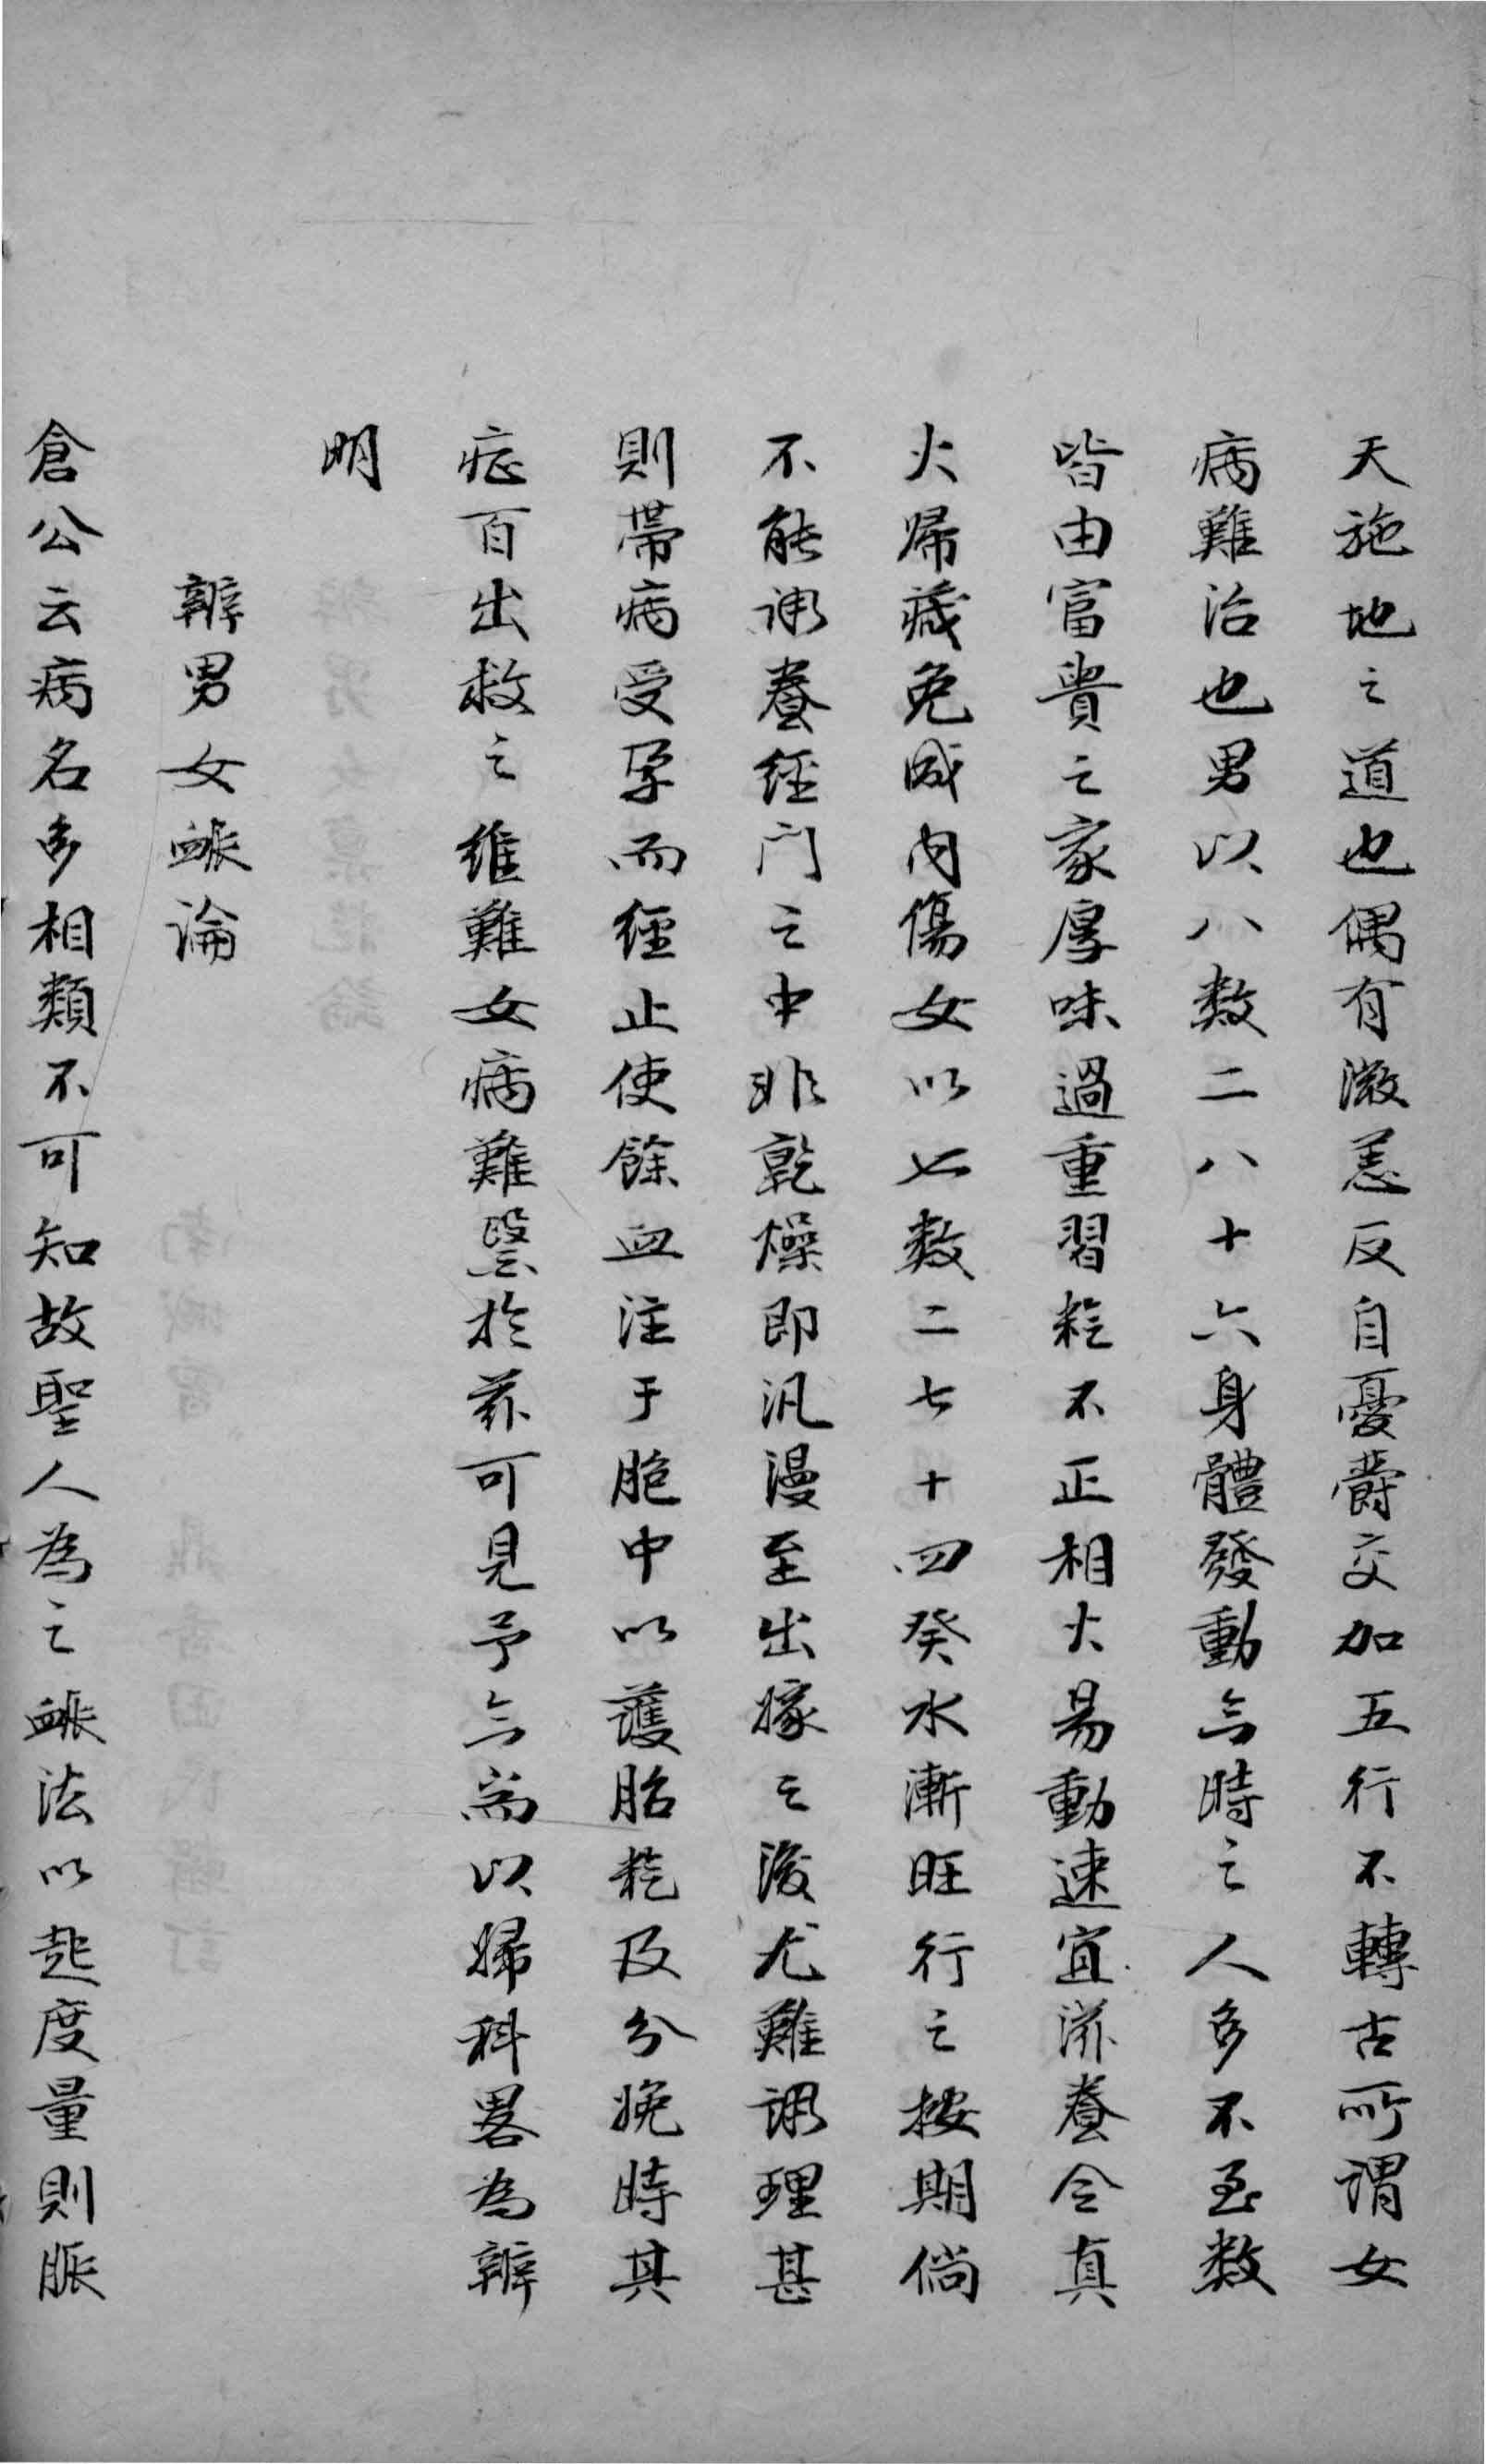 天施地之道也偶有微恙反自憂鬱交加五行不轉古所謂女
病難治也男以八數二八十六身體發動與時之人多不至數
皆由富貴之家厚味過重習䅆不正相火易動速宜滋養令真
火歸藏免咸內傷女以七數二七十四癸水漸旺行之按期倘
不能調養經門之中非乾燥即汎漫至出嫁之後尤難調理甚
則帶病受孕而經止使餘血注于胞中以護胎䅆及分娩時其
症百出救之維難女病難毉於茲可見予與耑以婦科畧為辨
明
辨男女衇論
倉公云病名多相類不可知故聖人為之衇法以起度量則脈